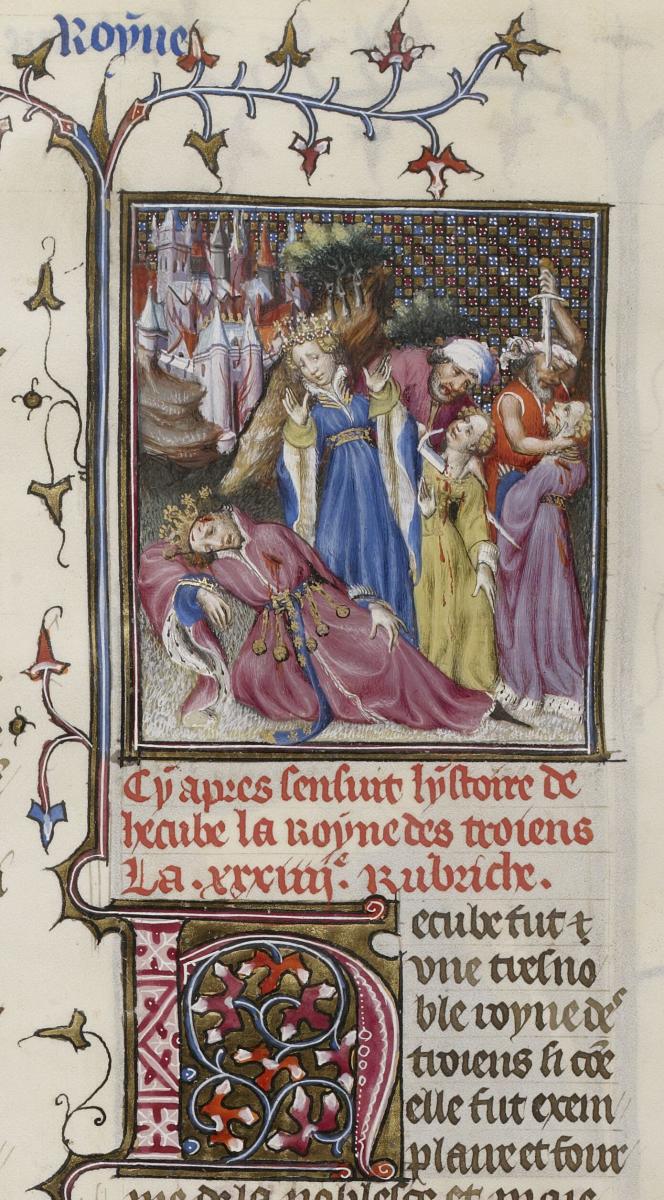 Royne
Cy apres sensuit lystoire de
hecube la royne des troiens
La .xxxiiij.e Rubriche.
Hecube fut et
vne tresno
ble royne des
troiens si cōe
elle fut exem
plaire et four
me de la noblesce et